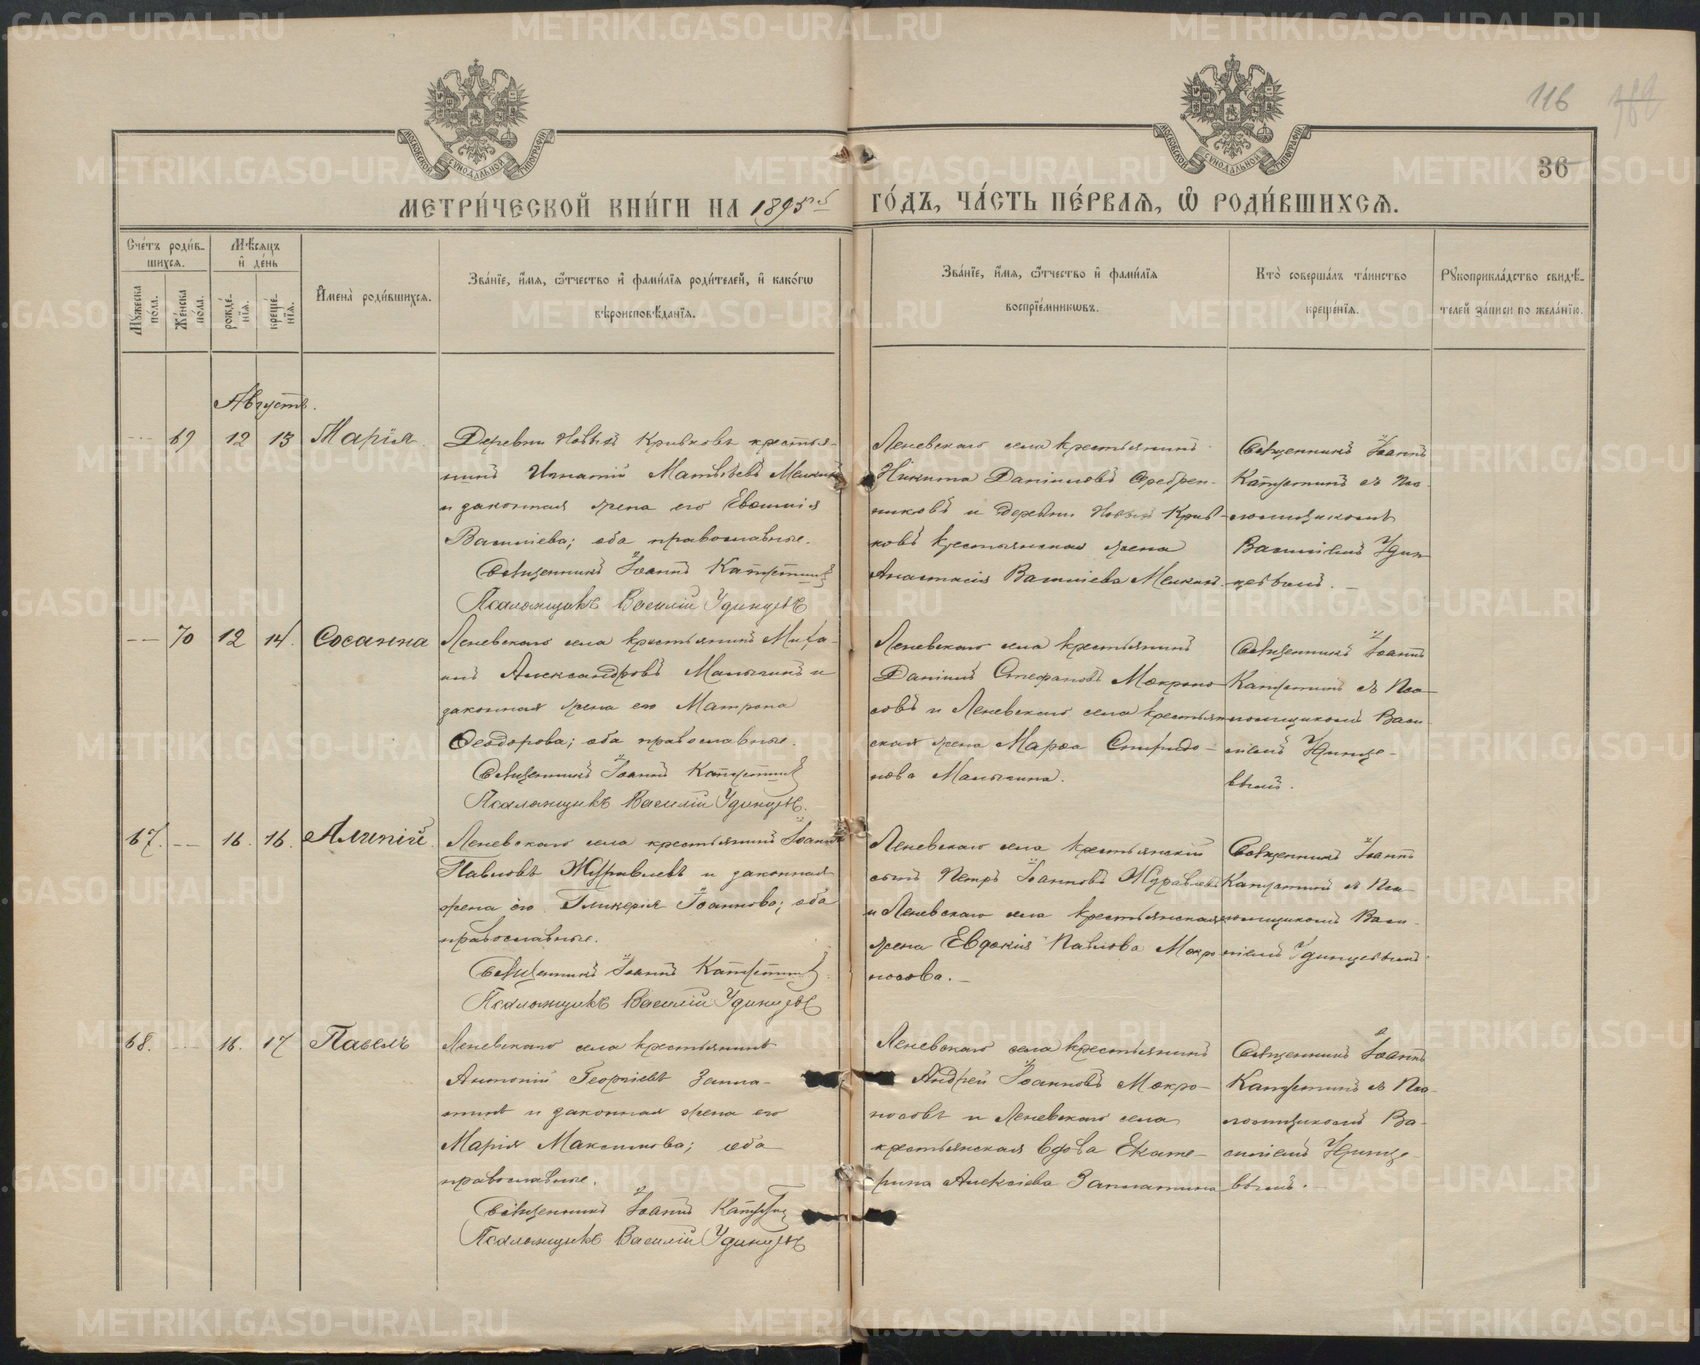 116
36
МЕТРИ́ЧЕСКОЙ КНИ́ГИ НА 1895й ГО́ДЪ, ЧА́СТЬ ПЕ́РВАЯ, Ѽ РОДИ́ВШИХСЯ.
Сче́тъ роди́в-
шихся.
Мꙋжеска по́ла.
Же́нска по́ла.
Мѣ́сяцъ
и̑ де́нь
рожде́-
нїѧ.
креще́-
нїѧ.
И̑мена̀ роди́вшихся.
Зва́нїе, и̑́мя, ѻ҆́тчество и̑ фами́лїя роди́телей, и̑ како́гѡ
вѣроисповѣ́данїя.
Зва́нїе, и̑́мя, ѻ҆́тчество и̑ фами́лїя
воспрїе́мникѡвъ.
Кто̀ соверша́лъ та́инство
креще́нїя.
Рꙋкоприкла́дство свидѣ́-
телей за́писи по жела́нїю.
Августъ.
69 12 13 Марія.
Деревни Новый Кривковъ крестья-
нинъ Игнатій Матвѣевъ Мелкин
и законная жена его Евѳимія
Василіева; оба православные.
Священникъ Іоаннъ Капустинъ
Псаломщикъ Василій Удинцевъ
Леневскаго села крестьянинъ
Никита Даніиловъ Серебрен-
никовъ и деревни Новый Крив-
ковъ крестьянская жена
Анастасія Василіева Мелкин.
Священникъ Іоаннъ
Капустинъ съ Пса-
ломщикомъ
Василіемъ Удин-
цевымъ.
70 12 14. Сосанна
Леневскаго села крестьянинъ Миха-
илъ Александровъ Малыгинъ и
законная жена его Матрона
Ѳеодорова; оба православные.
Священникъ Іоаннъ Капустинъ
Псаломщикъ Василій Удинцевъ.
Леневскаго села крестьянинъ
Даніилъ Стефановъ Мокроно-
совъ и Леневскаго села крестьян-
ская жена Марѳа Спиридо-
нова Малыгина.
Священникъ Іоаннъ
Капустинъ съ Пса-
ломщикомъ Васи-
ліемъ Удинце-
вымъ.
67. 16. 16. Алипій
Леневскаго села крестьянинъ Іоаннъ
Павловъ Журавлевъ и законная
жена его Гликерія Іоаннова; оба
православные.
Священникъ Іоаннъ Капустинъ
Псаломщикъ Василій Удинцевъ
Леневскаго села крестьянскій
сынъ Петръ Іоанновъ Журавлевъ
и Леневскаго села крестьянская
жена Евдокія Павлова Мокро-
носова.
Священникъ Іоаннъ
Капустинъ съ Пса-
ломщикомъ Васи-
ліемъ Удинцевымъ.
68. 16. 17 Павелъ
Леневскаго села крестьянинъ
Антоній Георгіевъ Запла-
тинъ и законная жена его
Марія Максимова; оба
православные.
Священникъ Іоаннъ Капустинъ
Псаломщикъ Василій Удинцевъ
Леневскаго села крестьянинъ
Андрей Іоанновъ Мокро-
носовъ и Леневскаго села
крестьянская вдова Екате-
рина Алексіева Заплатина
Священникъ Іоаннъ
Капустинъ съ Пса-
ломщикомъ Ва-
силіемъ Удинце-
вымъ.
METRIKI.GASO-URAL.RU